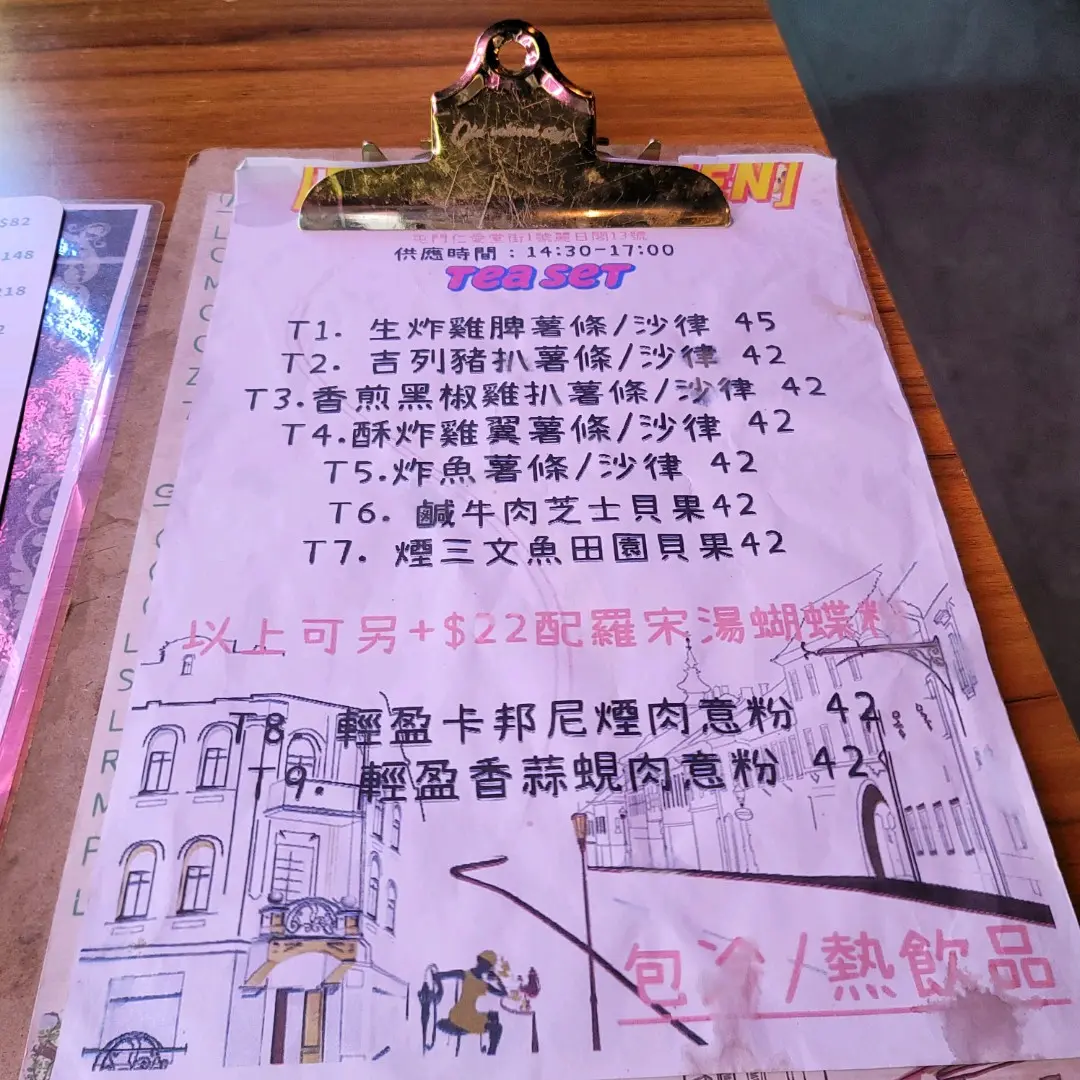 EN]
屯門仁愛堂街1號麗日閣13號
供應時間：14:30-17:00
Tea set
T1. 生炸雞脾薯條/沙律 45
T2. 吉列豬扒薯條/沙律 42
T3.香煎黑椒雞扒薯條/沙律 42
T4.酥炸雞翼薯條/沙律 42
T5.炸魚薯條/沙律 42
T6. 鹹牛肉芝士貝果42
T7. 煙三文魚田園貝果42
以上可另+$22配羅宋湯蝴蝶粉
T8. 輕盈卡邦尼煙肉意粉 42
T9. 輕盈香蒜蜆肉意粉 42
包冷/熱飲品
$82
148
218